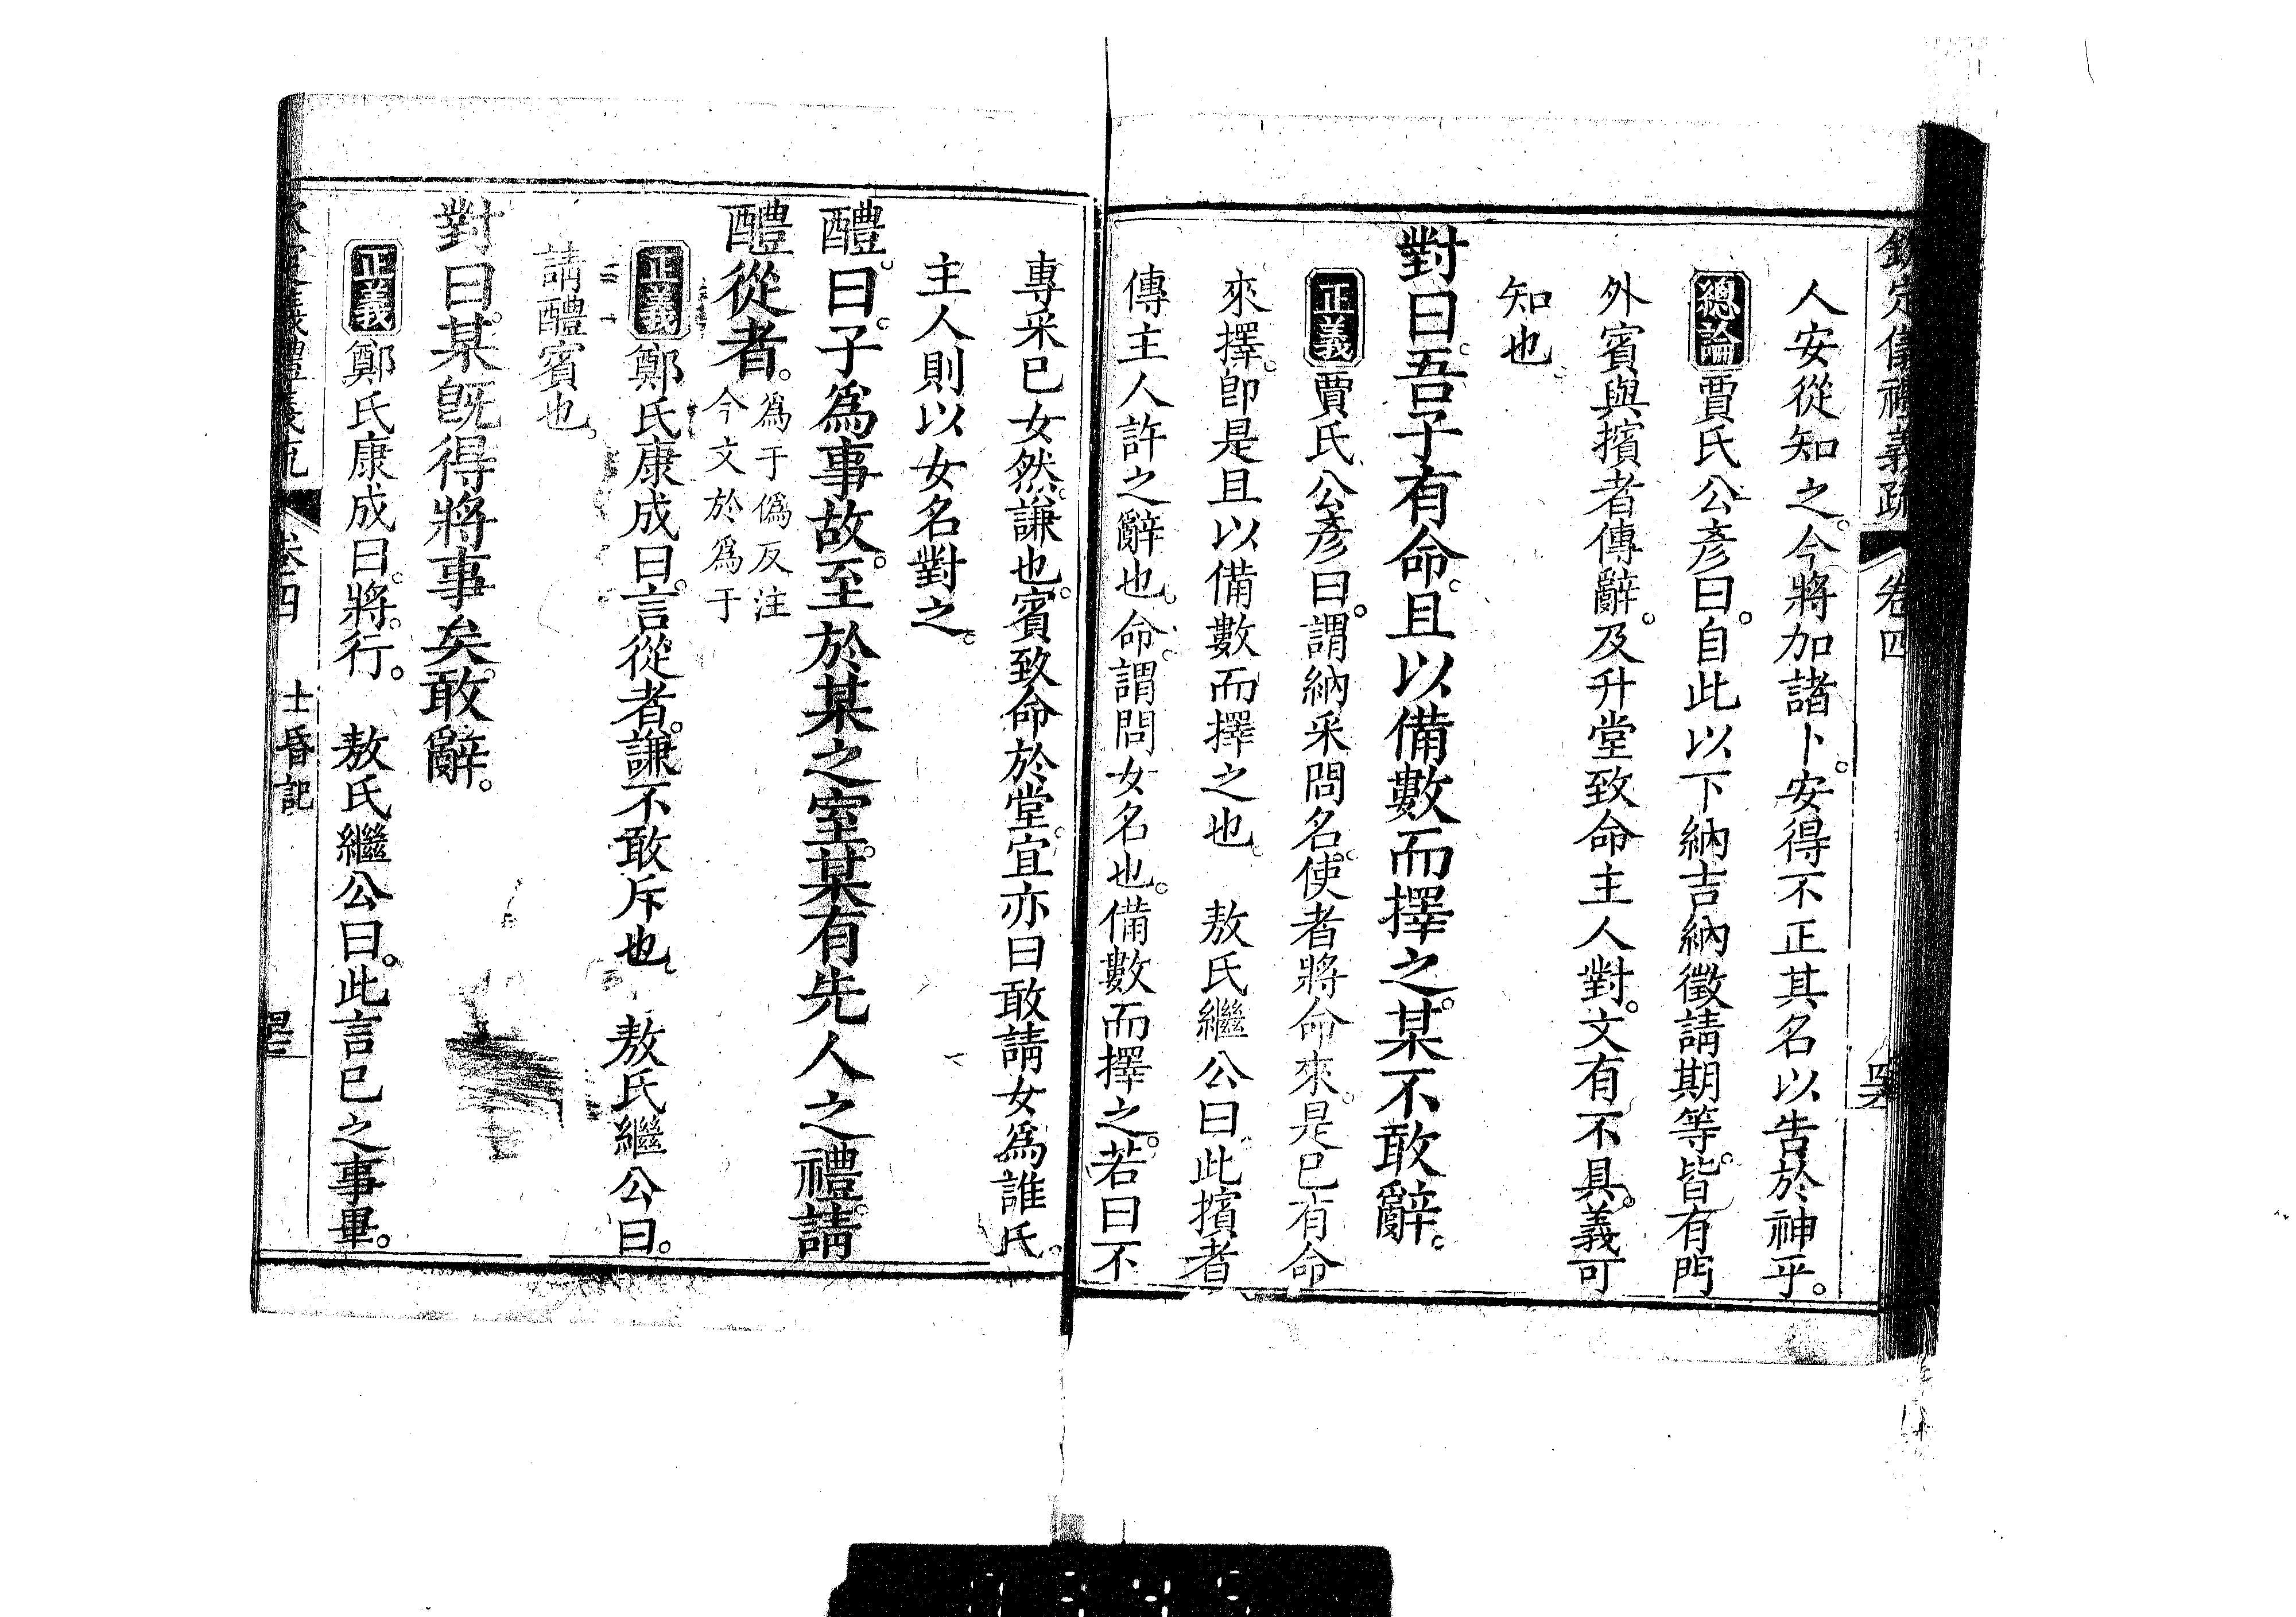 欽定儀禮義疏 卷四
人安從知之。今將加諸卜。安得不正其名以告於神乎。
總論賈氏公彥曰。自此以下納吉納徵請期等。皆有門
外賓與擯者傳辭。及升堂致命主人對。文有不具。義可
知也。
對曰。吾子有命。且以備數而擇之。某不敢辭。
正義賈氏公彥曰。謂納采問名。使者將命來。是已有命
來擇。卽是且以備數而擇之也。 敖氏繼公曰。此擯者
傳主人許之辭也。命。謂問女名也。備數而擇之。若曰不
專采已女然。謙也。賓致命於堂。宜亦曰敢請女爲誰氏。
主人則以女名對之。
醴。曰。子爲事故。至於某之室。某有先人之禮。請
醴從者。爲于僞反注
今文於爲于
正義鄭氏康成曰。言從者。謙不敢斥也。 敖氏繼公曰。
請醴賓也。
對曰。某旣得將事矣。敢辭。
正義鄭氏康成曰。將。行。 敖氏繼公曰。此言已之事畢。
卷四 士昏記